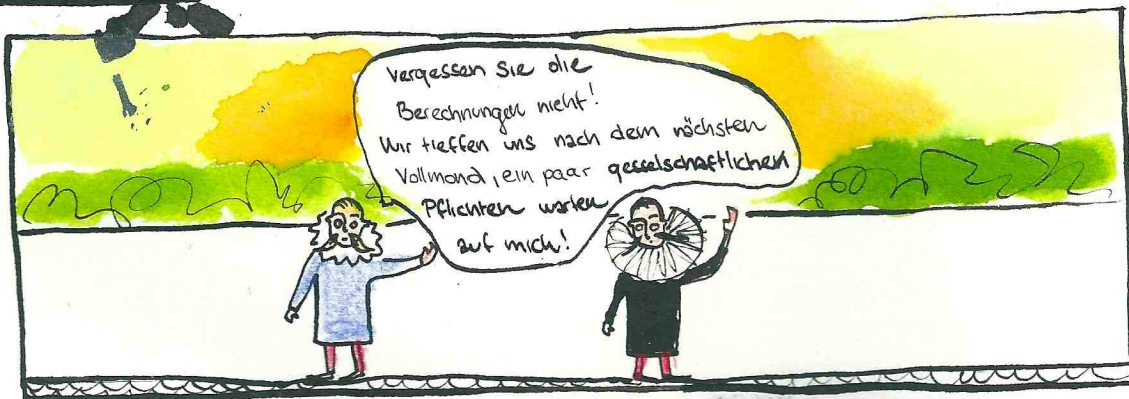 Vergessen Sie die
Berechnungen nicht!
Wir treffen uns nach dem nächsten
Vollmond, ein paar gesselschaftlichen
Pflichten warten
auf mich!